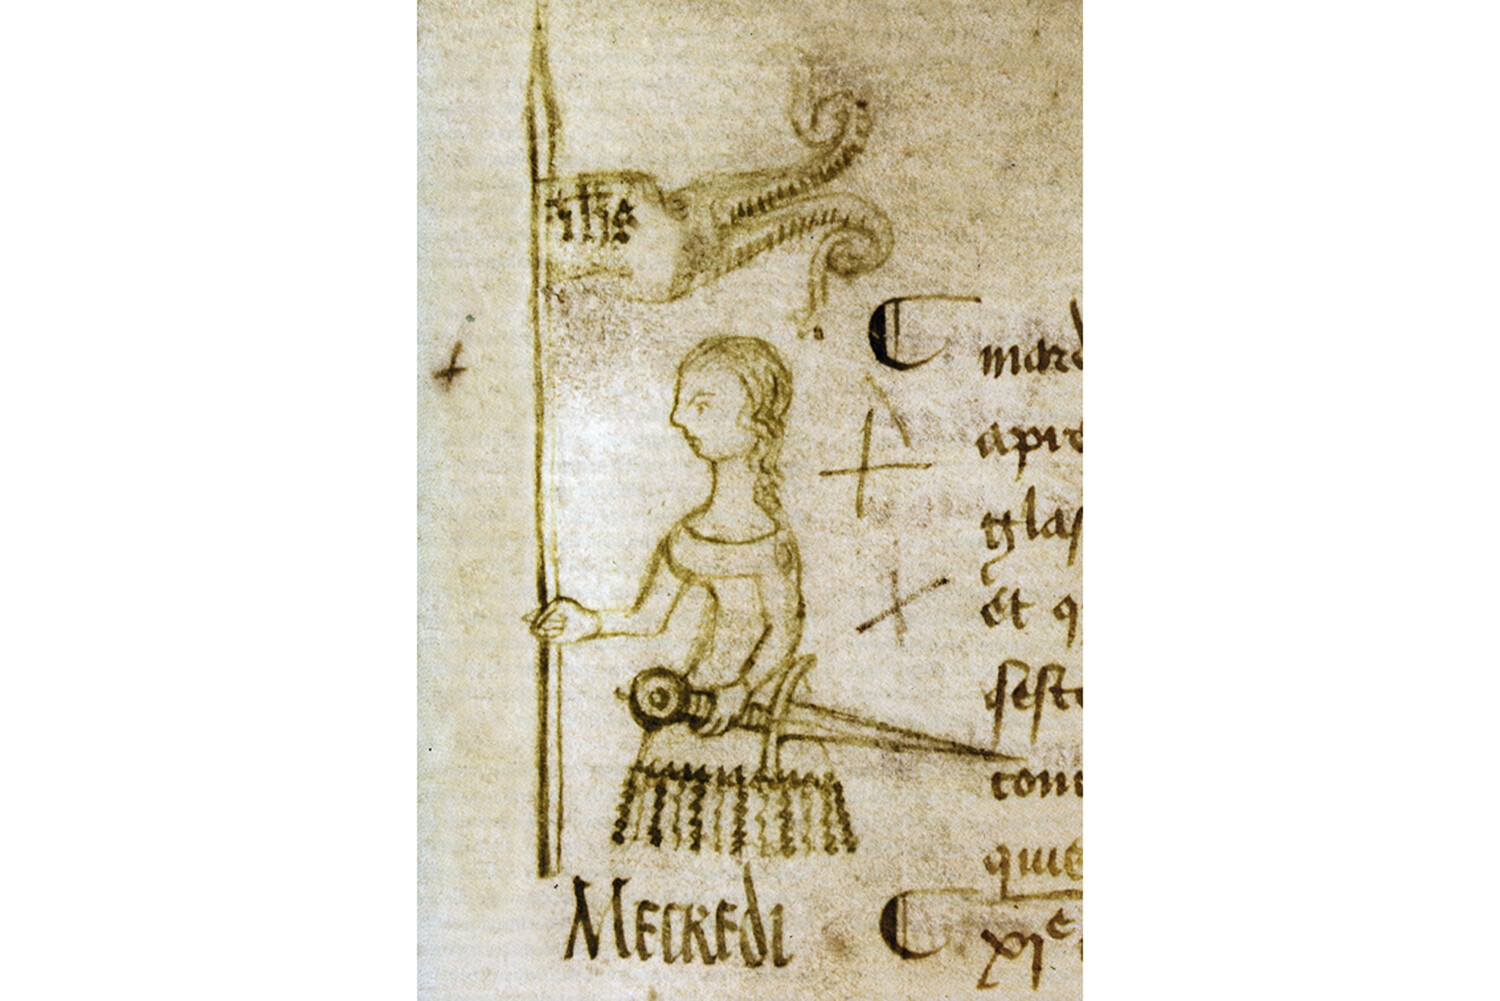 ihs
C mard
apre
glas
et q
seste
com
quie
Mecredi
C xie